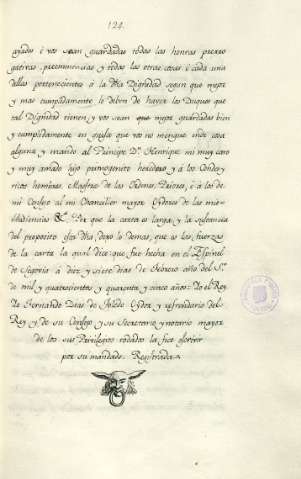 124.
ayades é vos sean guardadas todas las honras prero
gativas, preeminencias y todas las otras cosas é cada una
dellas pertenecientes á la dha Dignidad segun que mejor
y mas cumplidamente le deben de haver los Duques que
tal Dignidad tienen, y vos sean mejor guardadas bien
y cumplidamente en guisa que vos no mengue ende cosa
alguna y mando al Principe Dn. Henrique mi muy caro
y muy amado hijo primogenito heredero y á los Condes, y
ricos homes, Maestres de las Ordenes, Priores, é á los de
mi Consejo al mi Chanciller mayor Oydores de las mis
Audiencias &. Por que la carta es larga, y la substancia
del proposito dha, dejo lo demas, que es las fuerzas
de la carta la qual dice que fue fecha en el Espinel
de Segovia á diez y siete dias de Febrero año del Sr.
de mil y quatrocientos y quarenta y cinco años: Yo el Rey
Yo Fernando Dias de Toledo Oydor y refrendario del
Rey y de su Consejo y su Secretario y notario mayor
de los sus Privilegios rodados la fice escrivir
por su mandado. Registrada.